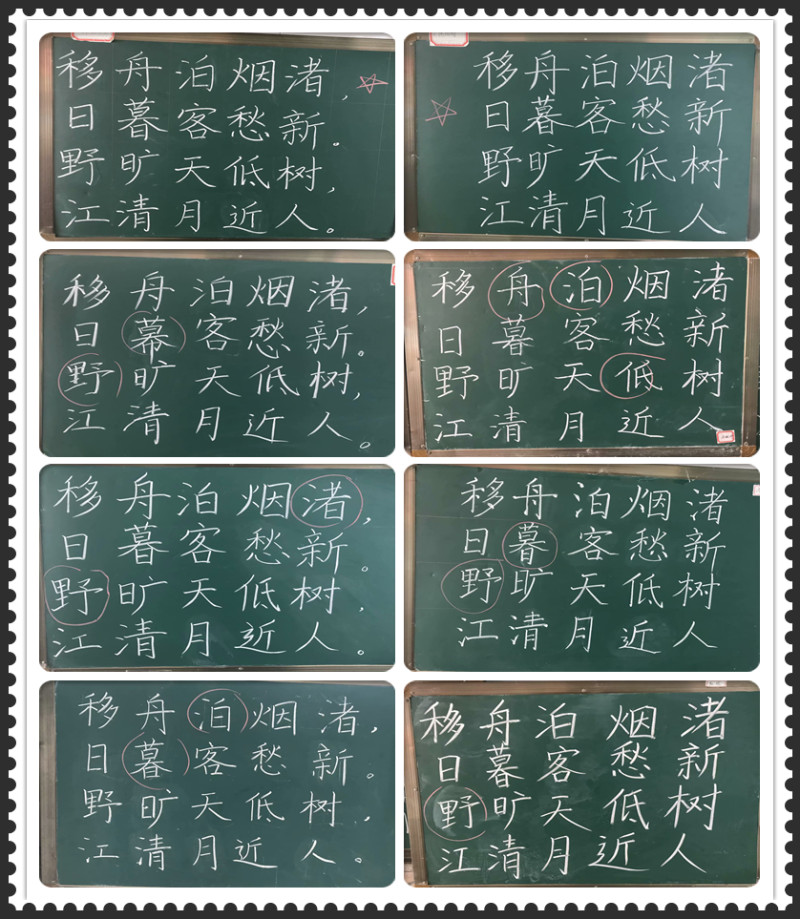 移舟泊烟渚,
日暮客愁新。
野旷天低树,
江清月近人。
移舟泊烟渚
日暮客愁新
野旷天低树
江清月近人
移舟泊烟渚,
日幕客愁新。
野旷天低树,
江清月近人。
移舟泊烟渚
日暮客愁新
野旷天低树
江清月近人
移舟泊烟渚,
日暮客愁新。
野旷天低树,
江清月近人。
移舟泊烟渚
日暮客愁新
野旷天低树
江清月近人
移舟泊烟渚,
日暮客愁新。
野旷天低树,
江清月近人。
移舟泊烟渚
日暮客愁新
野旷天低树
江清月近人